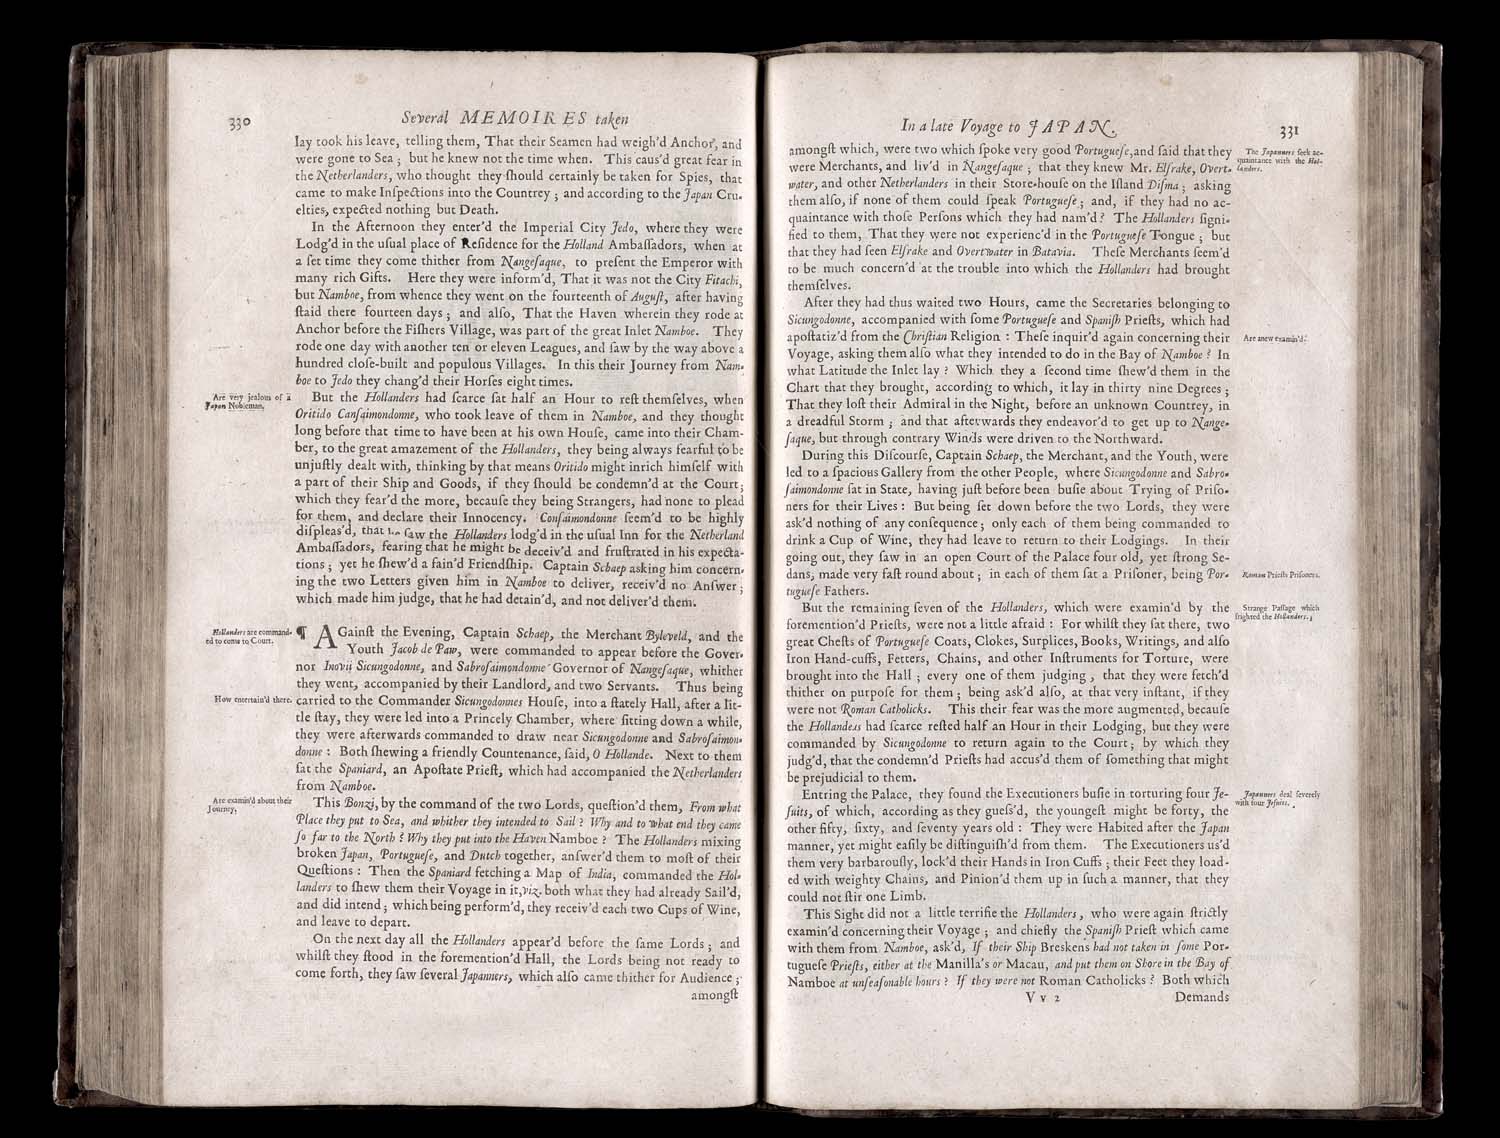 330
Several MEMOIRES taken
lay took his leave, telling them, That their Seamen had weigh'd Anchor, and
were gone to Sea ; but he knew not the time when. This caus'd great fear in
the Netherlanders, who thought they ſhould certainly be taken for Spies, that
came to make Inſpections into the Countrey ; and according to the Japan Cru-
elties, expected nothing but Death.
In the Afternoon they enter'd the Imperial City Jedo, where they were
Lodg'd in the uſual place of Reſidence for the Holland Ambaſſadors, when at
a ſet time they come thither from Nangeſaque, to preſent the Emperor with
many rich Gifts. Here they were inform'd, That it was not the City Fitachi,
but Namboe, from whence they went on the fourteenth of Auguſt, after having
ſtaid there fourteen days ; and alſo, That the Haven wherein they rode at
Anchor before the Fiſhers Village, was part of the great Inlet Namboe. They
rode one day with another ten or eleven Leagues, and ſaw by the way above a
hundred cloſe-built and populous Villages. In this their Journey from Nam-
boe to Jedo they chang'd their Horſes eight times.
Are very jealous of a
Japan Nobleman.
But the Hollanders had ſcarce ſat half an Hour to reſt themſelves, when
Oritido Canſqimondonne, who took leave of them in Namboe, and they thought
long before that time to have been at his own Houſe, came into their Cham-
ber, to the great amazement of the Hollanders, they being always fearful to be
unjuſtly dealt with, thinking by that means Oritido might inrich himſelf with
a part of their Ship and Goods, if they ſhould be condemn'd at the Court;
which they fear'd the more, becauſe they being Strangers, had none to plead
for them, and declare their Innocency. Conſaimondonne ſeem'd to be highly
diſpleas'd, that he ſaw the Hollanders lodg'd in the uſual Inn for the Netherland
Ambaſſadors, fearing that he might be deceiv'd and fruſtrated in his expecta-
tions ; yet he ſhew'd a fain'd Friendſhip. Captain Schaep asking him concern-
ing the two Letters given him in Namboe to deliver, receiv'd no Anſwer ;
which made him judge, that he had detain'd, and not deliver'd them.
Hollanders are command-
ed to come to Court.
¶ AGainſt the Evening, Captain Schaep, the Merchant Byleveld, and the
Youth Jacob de Paw, were commanded to appear before the Gover-
nor Inovij Sicungodonne, and Sabroſaimondonne Governor of Nangeſaque, whither
they went, accompanied by their Landlord, and two Servants. Thus being
How entertain'd there.
carried to the Commander Sicungodonnes Houſe, into a ſtately Hall, after a lit-
tle ſtay, they were led into a Princely Chamber, where ſitting down a while,
they were afterwards commanded to draw near Sicungodonne and Sabroſaimon-
donne : Both ſhewing a friendly Countenance, ſaid, O Hollande. Next to them
ſat the Spaniard, an Apoſtate Prieſt, which had accompanied the Netherlanders
from Namboe.
Are examin'd about their
Journey,
This Bonzi, by the command of the two Lords, queſtion'd them, From what
Place they put to Sea, and whither they intended to Sail ? Why and to what end they came
ſo far to the North ? Why they put into the Haven Namboe ? The Hollanders mixing
broken Japan, Portugueſe, and Dutch together, anſwer'd them to moſt of their
Queſtions : Then the Spaniard fetching a Map of India, commanded the Hol-
landers to ſhew them their Voyage in it, viz. both what they had already Sail'd,
and did intend ; which being perform'd, they receiv'd each two Cups of Wine,
and leave to depart.
On the next day all the Hollanders appear'd before the ſame Lords ; and
whilſt they ſtood in the foremention'd Hall, the Lords being not ready to
come forth, they ſaw ſeveral Japanners, which alſo came thither for Audience ;
amongſt
In a late Voyage to JAPAN.
331
amongſt which, were two which ſpoke very good Portugueſe, and ſaid that they
were Merchants, and liv'd in Nangeſaque ; that they knew Mr. Elſrake, Overt-
water, and other Netherlanders in their Store-houſe on the Iſland Diſma ; asking
them alſo, if none of them could ſpeak Portugueſe ; and, if they had no ac-
quaintance with thoſe Perſons which they had nam'd ? The Hollanders ſigni-
fied to them, That they were not experienc'd in the Portugueſe Tongue ; but
that they had ſeen Elſrake and Overtwater in Batavia. Theſe Merchants ſeem'd
to be much concern'd at the trouble into which the Hollanders had brought
themſelves.
The Japanners ſeek ac-
quaintance with the Hol-
landers.
After they had thus waited two Hours, came the Secretaries belonging to
Sicungodonne, accompanied with ſome Portugueſe and Spaniſh Prieſts, which had
apoſtatiz'd from the Chriſtian Religion : Theſe inquir'd again concerning their
Voyage, asking them alſo what they intended to do in the Bay of Namboe ? In
what Latitude the Inlet lay ? Which they a ſecond time ſhew'd them in the
Chart that they brought, according to which, it lay in thirty nine Degrees ;
That they loſt their Admiral in the Night, before an unknown Countrey, in
a dreadful Storm ; and that afterwards they endeavor'd to get up to Nange-
ſaque, but through contrary Winds were driven to the Northward.
Are anew examin'd.
During this Diſcourſe, Captain Schaep, the Merchant, and the Youth, were
led to a ſpacious Gallery from the other People, where Sicungodonne and Sabro-
ſaimondonne ſat in State, having juſt before been buſie about Trying of Priſo-
ners for their Lives : But being ſet down before the two Lords, they were
ask'd nothing of any conſequence ; only each of them being commanded to
drink a Cup of Wine, they had leave to return to their Lodgings. In their
going out, they ſaw in an open Court of the Palace four old, yet ſtrong Se-
dans, made very faſt round about ; in each of them ſat a Priſoner, being Por-
tugueſe Fathers.
Roman Prieſts Priſoners.
But the remaining ſeven of the Hollanders, which were examin'd by the
foremention'd Prieſts, were not a little afraid : For whilſt they ſat there, two
great Cheſts of Portugueſe Coats, Clokes, Surplices, Books, Writings, and alſo
Iron Hand-cuffs, Fetters, Chains, and other Inſtruments for Torture, were
brought into the Hall ; every one of them judging, that they were fetch'd
thither on purpoſe for them ; being ask'd alſo, at that very inſtant, if they
were not Roman Catholicks. This their fear was the more augmented, becauſe
the Hollanders had ſcarce reſted half an Hour in their Lodging, but they were
commanded by Sicungodonne to return again to the Court ; by which they
judg'd, that the condemn'd Prieſts had accus'd them of ſomething that might
be prejudicial to them.
Strange Paſſage which
frighted the Hollanders.
Entring the Palace, they found the Executioners buſie in torturing four Je-
ſuits, of which, according as they gueſs'd, the youngeſt might be forty, the
other fifty, ſixty, and ſeventy years old : They were Habited after the Japan
manner, yet might eaſily be diſtinguiſh'd from them. The Executioners us'd
them very barbarouſly, lock'd their Hands in Iron Cuffs ; their Feet they load-
ed with weighty Chains, and Pinion'd them up in ſuch a manner, that they
could not ſtir one Limb.
Japanners deal ſeverely
with four Jeſuits.
This Sight did not a little terrifie the Hollanders, who were again ſtrictly
examin'd concerning their Voyage ; and chiefly the Spaniſh Prieſt which came
with them from Namboe, ask'd, If their Ship Breskens had not taken in ſome Por-
tugueſe Prieſts, either at the Manilla's or Macau, and put them on Shore in the Bay of
Namboe at unſeaſonable hours ? If they were not Roman Catholicks ? Both which
V v 2
Demands